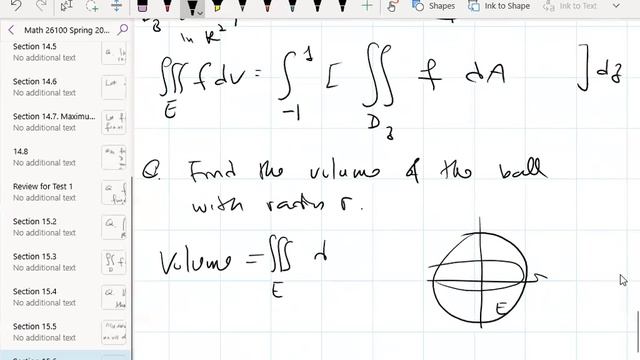 Shapes
Ink to Shape
Ink to Text
Math 26100 Spring 20...
in R²
Section 14.5
No additional text
Section 14.6
No additional text
Section 14.7. Maximu...
No additional text
14.8
No additional text
Review for Test 1
No additional text
Section 15.2
No additional text
Section 15.3
No additional text
Section 15.4
No additional text
Section 15.5
No additional text
∭_E f dv = ∫_{-1}^{1} [ ∬_{D_z} f dA ] dz
Q. Find the volume of the ball
with radius r.
Volume = ∭_E d
r
E